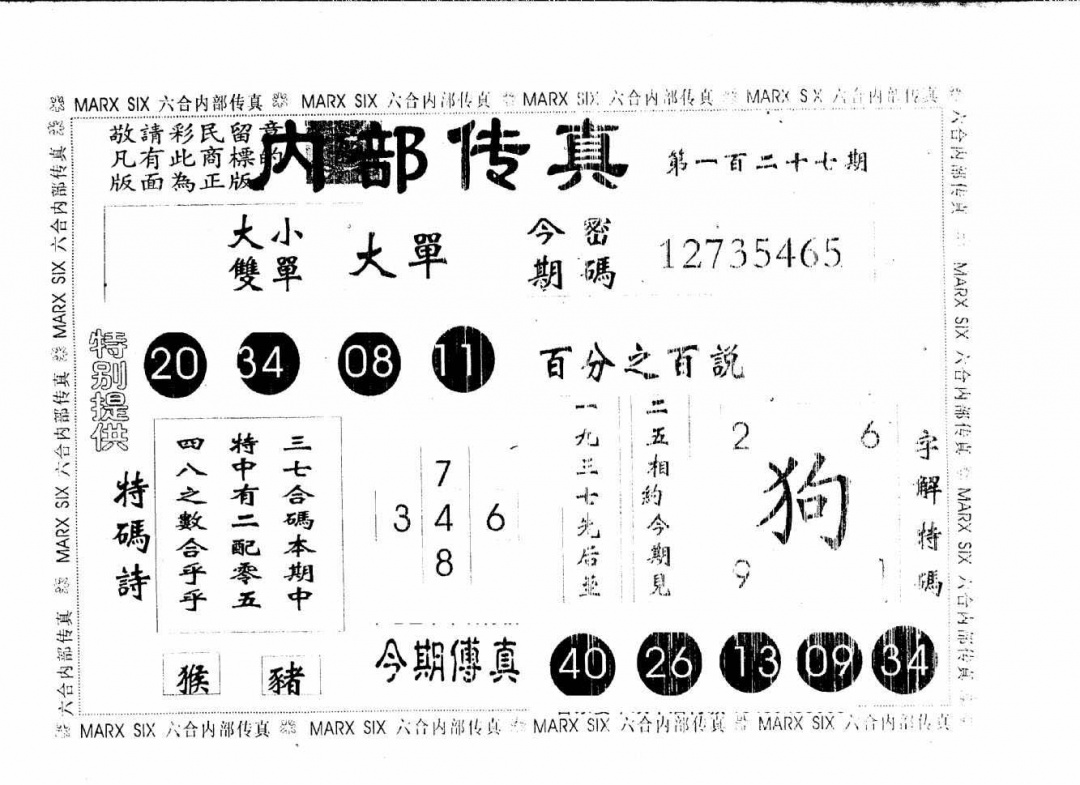 MARX SIX 六合内部传真 MARX SIX 六合内部传真 MARX SIX 六合内部传真 MARX SIX 六合内部传真
敬請彩民留意
凡有此商標的
版面為正版
内部传真
第一百二十七期
大小
雙單
大單
今期
密碼
12735465
特别提供
20 34 08 11
百分之百説
特碼詩
三七合碼本期中
特中有二配零五
四八之數合乎乎
7
3 4 6
8
二五相約今期見
一九三七先后並
2 6
狗
9 1
字解特碼
猴 豬
今期傳真
40 26 13 09 34
MARX SIX 六合内部传真 MARX SIX 六合内部传真 MARX SIX 六合内部传真 MARX SIX 六合内部传真
六合内部传真 MARX SIX 六合内部传真 MARX SIX 六合内部传真
六合内部传真 MARX SIX 六合内部传真 MARX SIX 六合内部传真